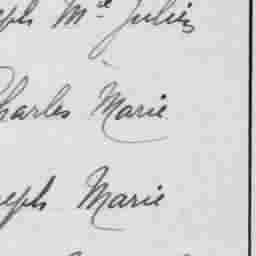 eph Md Julien
Charles Marie
seph Marie